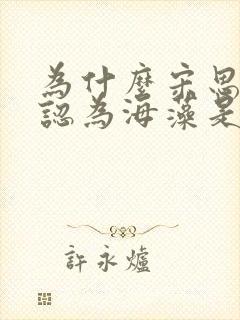 為什麼宋思
認為海藻是
許永爐